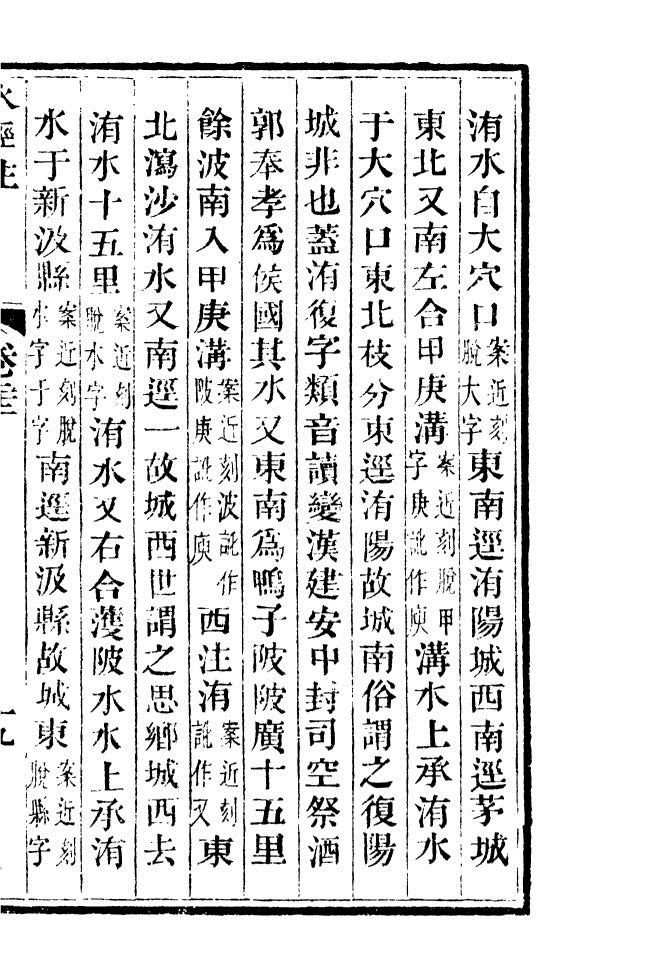 洧水自大穴口案近刻脫大字東南逕洧陽城西南逕茅城
東北又南左合甲庚溝案近刻脫甲字庚訛作庾溝水上承洧水
于大穴口東北枝分東逕洧陽故城南俗謂之復陽
城非也蓋洧復字類音讀變漢建安中封司空祭酒
郭奉孝爲侯國其水又東南爲鴨子陂陂廣十五里
餘波南入甲庚溝案近刻波訛作陂庚訛作庾西注洧案近刻訛作又東
北瀉沙洧水又南逕一故城西世謂之思鄉城西去
洧水十五里案近刻脫水字洧水又右合濩陂水水上承洧
水于新汲縣案近刻脫水字于字南逕新汲縣故城東案近刻脫縣字
水經注 卷二十二 十九